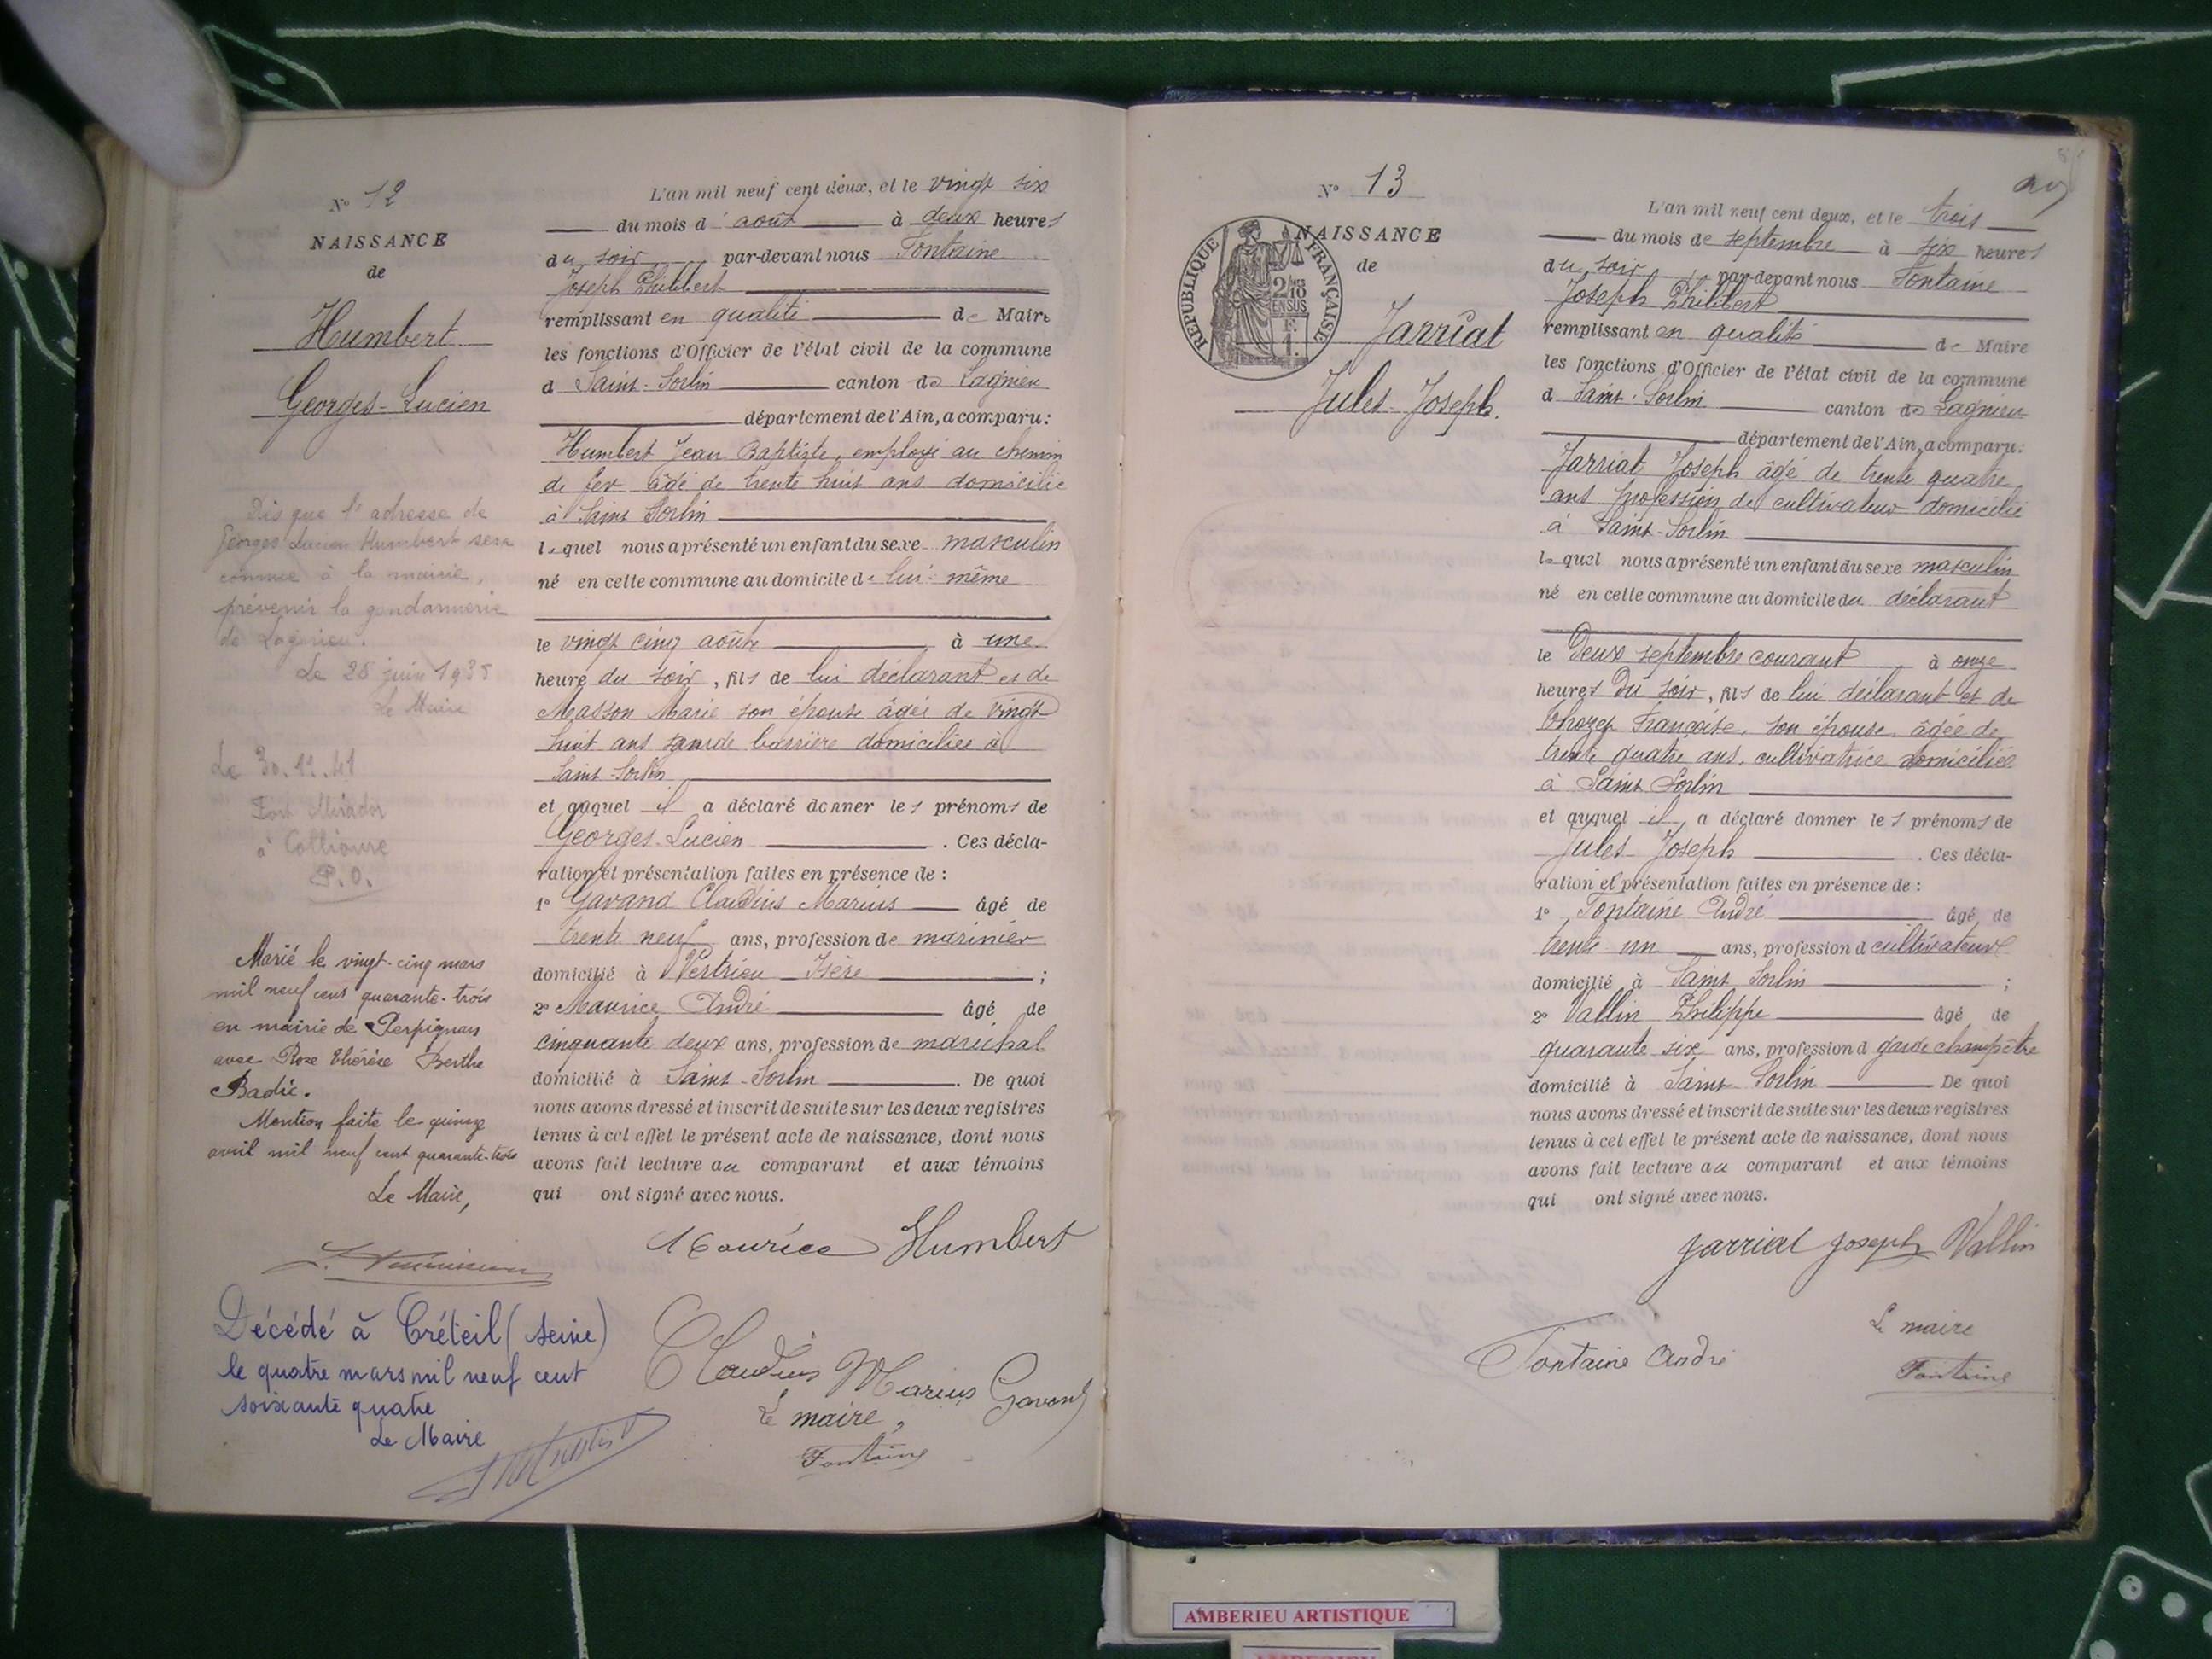 N° 12
NAISSANCE
de
Humbert
Georges-Lucien
Dès que l'adresse de
Georges Lucien Humbert sera
connue à la mairie,
prévenir la gendarmerie
de Lagnieu.
Le 28 juin 1935
Le Maire
Le 30.12.41
Fort Mirador
à Collioure
P.O.
Marié le vingt-cinq mars
mil neuf cent quarante-trois
en mairie de Perpignan
avec Rose Thérèse Berthe
Badie.
Mention faite le quinze
avril mil neuf cent quarante-trois
Le Maire,
Décédé à Créteil (Seine)
le quatre mars mil neuf cent
soixante quatre
Le Maire
L'an mil neuf cent deux, et le vingt six
du mois d'août à deux heures
du soir par-devant nous Fontaine
Joseph Philibert
remplissant en qualité de Maire
les fonctions d'Officier de l'état civil de la commune
d Saint-Sorlin canton de Lagnieu
département de l'Ain, a comparu:
Humbert Jean Baptiste, employé au chemin
de fer âgé de trente huit ans domicilié
à Saint Sorlin
lequel nous a présenté un enfant du sexe masculin
né en cette commune au domicile de lui-même
le vingt cinq août à une
heure du soir, fils de lui déclarant et de
Masson Marie son épouse âgée de vingt
huit ans garde barrière domiciliée à
Saint-Sorlin
et auquel il a déclaré donner les prénoms de
Georges-Lucien. Ces décla-
ration et présentation faites en présence de :
1° Gavand Claudius Marius âgé de
trente neuf ans, profession de marinier
domicilié à Vertrieu Isère ;
2° Maurice André âgé de
cinquante deux ans, profession de maréchal
domicilié à Saint-Sorlin. De quoi
nous avons dressé et inscrit de suite sur les deux registres
tenus à cet effet le présent acte de naissance, dont nous
avons fait lecture au comparant et aux témoins
qui ont signé avec nous.
Maurice Humbert
Claudius Marius Gavand
Le maire,
Fontaine
N° 13
NAISSANCE
de
REPUBLIQUE FRANÇAISE
2/10
EN SUS
F.
1.
Jarriat
Jules-Joseph.
L'an mil neuf cent deux, et le trois
du mois de septembre à six heures
du soir par-devant nous Fontaine
Joseph Philibert
remplissant en qualité de Maire
les fonctions d'Officier de l'état civil de la commune
d Saint-Sorlin canton de Lagnieu
département de l'Ain, a comparu:
Jarriat Joseph âgé de trente quatre
ans profession de cultivateur domicilié
à Saint-Sorlin
lequel nous a présenté un enfant du sexe masculin
né en cette commune au domicile du déclarant
le Deux septembre courant à onze
heures Du soir, fils de lui déclarant et de
Françoise, son épouse, âgée de
trente quatre ans, cultivatrice domiciliée
à Saint Sorlin
et auquel il a déclaré donner les prénoms de
Jules-Joseph. Ces décla-
ration et présentation faites en présence de :
1° Fontaine André âgé de
trente un ans, profession d cultivateur
domicilié à Saint Sorlin ;
2° Vallin Philippe âgé de
quarante six ans, profession d garde champêtre
domicilié à Saint Sorlin De quoi
nous avons dressé et inscrit de suite sur les deux registres
tenus à cet effet le présent acte de naissance, dont nous
avons fait lecture au comparant et aux témoins
qui ont signé avec nous.
Jarriat Joseph Vallin
Fontaine André
Le maire
Fontaine
AMBERIEU ARTISTIQUE